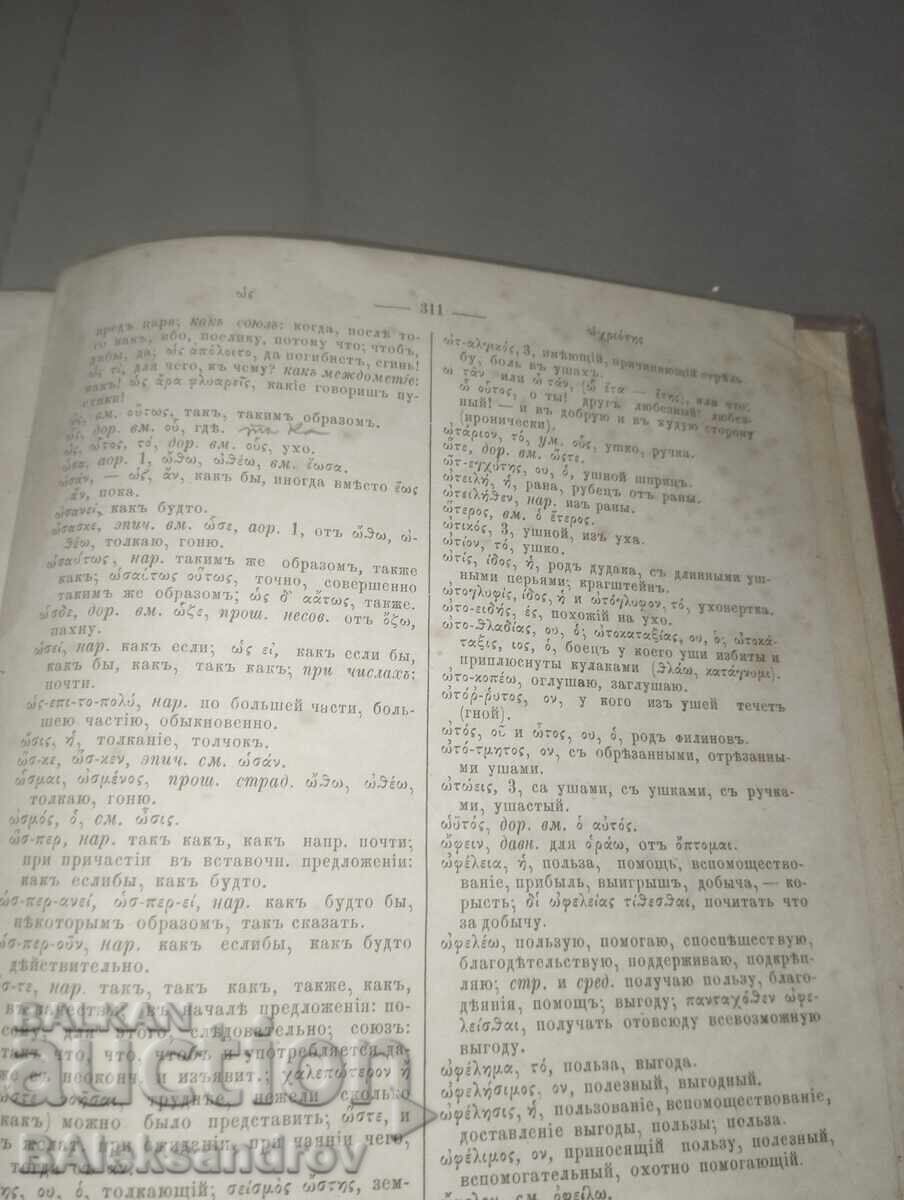 ὡς
— 311 —
ὠχριότης
предъ царя; какъ союзъ: когда, послѣ то-
го какъ, ибо, послику, потому что; чтобъ,
дабы, да; ὡς ἀπόλοιτο, да погибнетъ, сгинь!
ὡς τί, для чего, къ чему? какъ междометіе:
какъ! ὡς ἄρα φλυαρεῖς, какіе говоришь пу-
стяки!
ὥς, вм. οὕτως, такъ, такимъ образомъ.
ὧς, дор. вм. οὗ, гдѣ.
ὦς, ὠτος, τό, дор. вм. οὖς, ухо.
ὦσα, аор. 1, ὤθω, ὠθέω, вм. ἔωσα.
ὡσάν, — ὡς, ἄν, какъ бы, иногда вмѣсто ἕως
ἄν, пока.
ὡσανεί, какъ будто.
ὤσασκε, эпич. вм. ὦσε, аор. 1, отъ ὤθω, ὠ-
θέω, толкаю, гоню.
ὡσαύτως, нар. такимъ же образомъ, также
какъ; ὡσαύτως οὕτως, точно, совершенно
такимъ же образомъ; ὡς δ' αὔτως, также.
ὦσδε, дор. вм. ὦζε, прош. несов. отъ ὄζω,
пахну.
ὡσεί, нар. какъ если; ὡς εἰ, какъ если бы,
какъ бы, какъ, такъ какъ; при числахъ:
почти.
ὡς-επι-το-πολύ, нар. по большей части, боль-
шею частію, обыкновенно.
ὦσις, ἡ, толканіе, толчокъ.
ὥς-κε, ὥς-κεν, эпич. см. ὡσάν.
ὦσμαι, ὠσμένος, прош. страд. ὤθω, ὠθέω,
толкаю, гоню.
ὠσμός, ὁ, см. ὦσις.
ὥς-περ, нар. такъ какъ, какъ напр. почти;
при причастіи въ вставочн. предложеніи:
какъ еслибы, какъ будто.
ὡσ-περ-ανεί, ὡσ-περ-εί, нар. какъ будто бы,
нѣкоторымъ образомъ, такъ сказать.
ὡσ-περ-οῦν, нар. какъ еслибы, какъ будто
дѣйствительно.
ὥς-τε, нар. такъ, такъ какъ, также, какъ,
въ качествѣ; въ началѣ предложенія: по-
для этого, слѣдовательно; союзъ:
такъ что, что, чтобъ и употребляется да-
же съ неокнч. и изъявит.; χαλεπώτερον ἢ
труднѣе, нежели сколько
какъ) можно было представить; ὥστε, и
при ожиданіи, при чаяніи чего,
тогда какъ ἄν,
της, ου, ὁ, толкающій; σεισμὸς ὤστης, зем-
ὠτ-αλγικός, 3, имѣющій, причиняющій стрѣль-
бу, боль въ ушахъ.
ὦ τᾶν или ὦ τάν, (ὦ ἔτα — ἔτης), или что:
ὦ οὗτος, о ты! другъ любезный! любез-
ный! — и въ добрую и въ худую сторону
(иронически).
ὠτάριον, τό, ум. οὖς, ушко, ручка.
ὦτε, дор. вм. ὥςτε.
ὠτ-εγχύτης, ου, ὁ, ушной шприцъ.
ὠτειλή, ἡ, рана, рубецъ отъ раны.
ὠτειλῆθεν, нар. изъ раны.
ὥτερος, вм. ὁ ἕτερος.
ὠτικός, 3, ушной, изъ уха.
ὠτίον, τό, ушко.
ὠτίς, ίδος, ἡ, родъ дудака, съ длинными уш-
ными перьями; крагштейнъ.
ὠτογλυφίς, ίδος, ἡ и ὠτόγλυφον, τό, уховертка.
ὠτο-ειδής, ές, похожій на ухо.
ὠτο-θλαδίας, ου, ὁ; ὠτοκαταξίας, ου, ὁ; ὠτοκά-
ταξις, ιος, ὁ, боецъ у коего уши избиты и
приплюснуты кулаками (θλάω, κατάγνυμι).
ὠτο-κοπέω, оглушаю, заглушаю.
ὠτόῤ-ῥυτος, ον, у кого изъ ушей течетъ
(гной).
ὠτός, οῦ и ὦτος, ου, ὁ, родъ филиновъ.
ὠτό-τμητος, ον, съ обрѣзанными, отрѣзанны-
ми ушами.
ὠτώεις, 3, са ушами, съ ушками, съ ручка-
ми, ушастый.
ὡὐτός, дор. вм. ὁ αὐτός.
ὤφειν, давн. для ὁράω, отъ ὄπτομαι.
ὠφέλεια, ἡ, польза, помощь, вспомощество-
ваніе, прибыль, выигрышъ, добыча, — ко-
рысть; δί ὠφελείας τίθεσθαι, почитать что
за добычу.
ὠφελέω, пользую, помогаю, споспѣшествую,
благодѣтельствую, поддерживаю, подкрѣп-
ляю; стр. и сред. получаю пользу, благо-
дѣянія, помощь; выгоду; πανταχόθεν ὠφε-
λεῖσθαι, получать отовсюду всевозможную
выгоду.
ὠφέλημα, τό, польза, выгода.
ὠφελήσιμος, ον, полезный, выгодный.
ὠφέλησις, ἡ, пользованіе, вспомоществованіе,
доставленіе выгоды, пользы; польза.
ὠφέλιμος, ον, приносящій пользу, полезный,
вспомогательный, охотно помогающій.
см. ὀφείλω.
BALKAN
auction
BAleksandrov